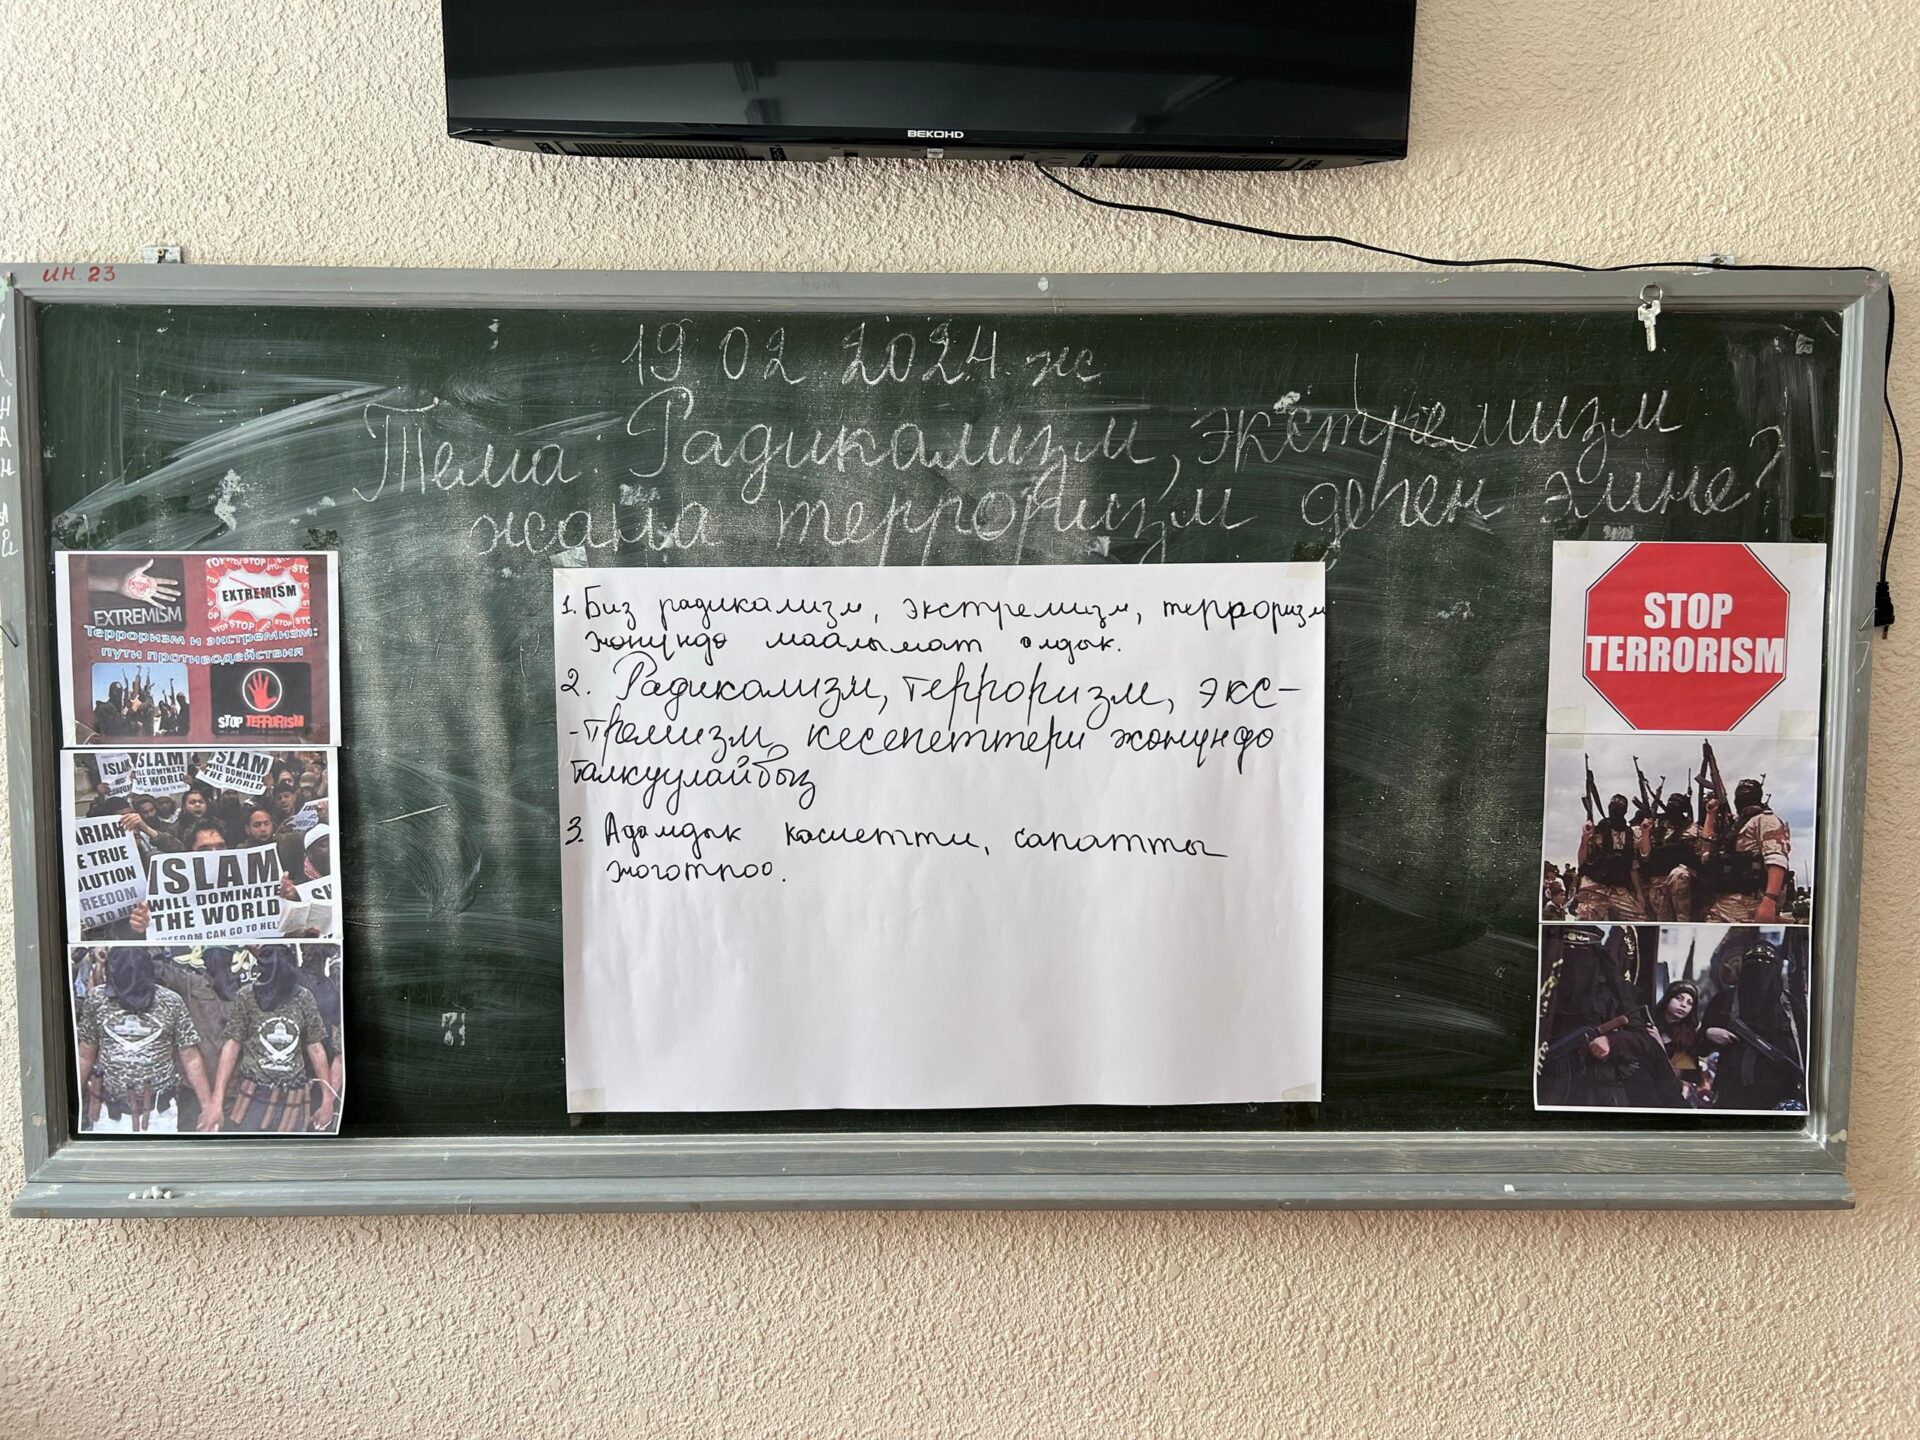 BEKOHD
ИН. 23
19 02 2024 жс
Тема: Радикализм, экстремизм
жана терроризм деген эмне?
EXTREMISM
EXTREMISM
Терроризм и экстремизм:
пути противодействия
STOP TERRORISM
ISLAM
WILL DOMINATE
THE WORLD
ISLAM
WILL DOMINATE
THE WORLD
ARIAH
E TRUE
OLUTION
REEDOM
GO TO HE
ISLAM
WILL DOMINATE
THE WORLD
FREEDOM CAN GO TO HEL
1. Биз радикализм, экстремизм, терроризм
жөнүндө маалымат алдык.
2. Радикализм, терроризм, экс-
-тремизм кесепеттери жөнүндө
талкуулайбыз
3. Адамдык касиетти, сапатты
жоготпоо.
STOP
TERRORISM